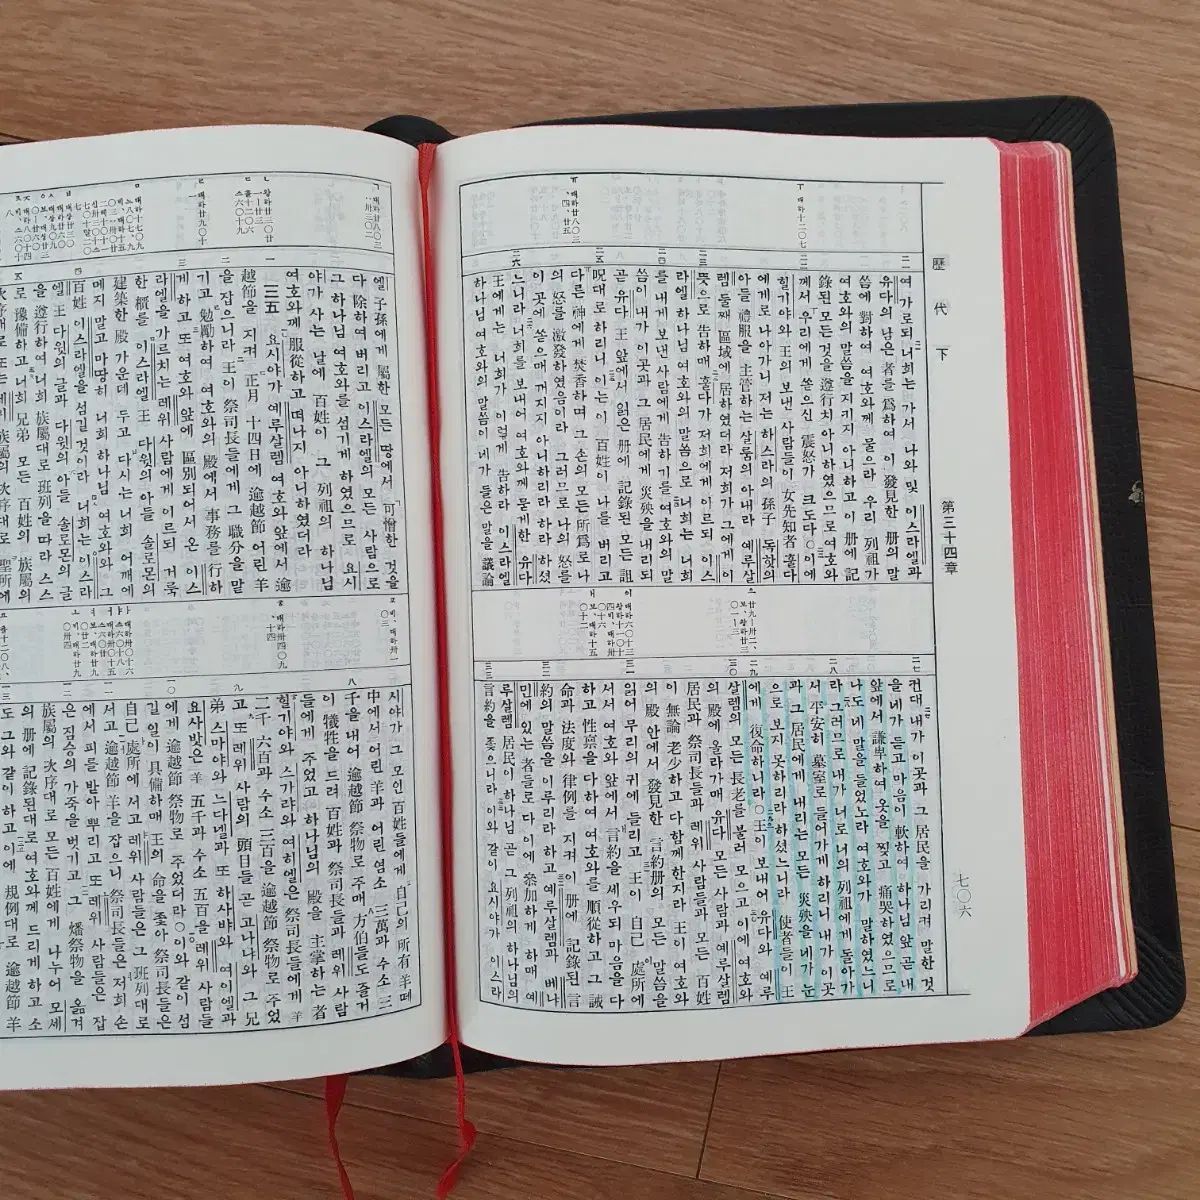 歷代下
第三十四章
七〇六
여가로되 너희는 가서 나와 및 이스라엘과
유다의 남은 者를 爲하여 이 發見한 册의 말
씀에 對하여 여호와께 물으라 우리 列祖가
여호와의 말씀을 지키지 아니하고 이 册에 記
錄된 모든 것을 遵行치 아니하였으므로 여호와
께서 우리에게 쏟으신 震怒가 크도다 〇 이에
힐기야와 王의 보낸 사람들이 女先知者 훌다
에게로 나아가니 저는 하스라의 孫子 독핫의
아들 禮服을 主管하는 살룸의 아내라 예루살
렘 둘째 區域에 居하였더라 저희가 그에게 이
뜻으로 告하매 훌다가 저희에게 이르되 이스
라엘 하나님 여호와의 말씀으로 너희는 너희
를 내게 보낸 사람에게 告하기를 여호와의 말
씀이 내가 이곳과 그 居民에게 災殃을 내리되
곧 유다 王 앞에서 읽은 册에 記錄된 모든 詛
呪대로 하리니 이는 이 百姓이 나를 버리고
다른 神에게 焚香하며 그 손의 모든 所爲로 나
의 怒를 激發하였음이라 그러므로 나의 怒를
이곳에 쏟으매 꺼지지 아니하리라 하라 하셨
느니라 너희를 보내어 여호와께 묻게한 유다
王에게는 너희가 이렇게 告하라 이스라엘
하나님 여호와의 말씀이 네가 들은 말을 議論
컨대 내가 이곳과 그 居民을 가리켜 말한 것
을 네가 듣고 마음이 軟하여 하나님 앞 곧 내
앞에서 謙卑하여 옷을 찢고 痛哭하였으므로
나도 네 말을 들었노라 여호와가 말하였느니
라 그러므로 내가 너로 너의 列祖에게 돌아가
서 平安히 墓室로 들어가게 하리니 내가 이곳
과 그 居民에게 내리는 모든 災殃을 네가 눈
으로 보지 못하리라 하셨느니라 使者들이 王
에게 復命하니라 〇 王이 보내어 유다와 예루
살렘의 모든 長老를 불러 모으고 이에 여호와
의 殿에 올라가매 유다 모든 사람과 예루살렘
居民과 祭司長들과 레위 사람들과 모든 百姓
이 無論 老少하고 다 함께 한지라 王이 여호와
의 殿 안에서 發見한 言約册의 모든 말씀을
읽어 무리의 귀에 들리고 王이 自己 處所에
서서 여호와 앞에서 言約을 세우되 마음을 다
하고 性禀을 다하여 여호와를 順從하고 그 誡
命과 法度와 律例를 지켜 이 册에 記錄된 言
約의 말씀을 이루리라 하고 예루살렘과 베냐
민에 있는 者들로 다 이에 參加하게 하매 예
루살렘 居民이 하나님 곧 그 列祖의 하나님의
言約을 좇으니라 이와 같이 요시야가 이스라
엘 子孫에게 屬한 모든 땅에서 可憎한 것을
다 除하여 버리고 이스라엘의 모든 사람으로
그 하나님 여호와를 섬기게 하였으므로 요시
야가 사는 날에 百姓이 그 列祖의 하나님
여호와께 服從하고 떠나지 아니하였더라
三五 요시야가 예루살렘 여호와 앞에서 逾
越節을 지켜 正月 十四日에 逾越節 어린 羊
을 잡으니라 王이 祭司長들에게 그 職分을 맡
기고 勉勵하여 여호와의 殿에서 事務를 行하
게 하고 또 여호와 앞에 區別되어서 온 이스
라엘을 가르치는 레위 사람에게 이르되 거룩
한 櫃를 이스라엘 王 다윗의 아들 솔로몬의
建築한 殿 가운데 두고 다시는 너희 어깨에
메지 말고 마땅히 너희 하나님 여호와와 그
百姓 이스라엘을 섬길 것이라 너희는 이스라
엘 王 다윗의 글과 다윗의 아들 솔로몬의 글
을 遵行하여 너희 族屬대로 班列을 따라 스스
로 豫備하고 너희 兄弟 모든 百姓의 族屬의
次序대로 또는 레위 族屬의 次序대로 聖所에
시야가 그 모인 百姓들에게 自己의 所有 羊떼
中에서 어린 羊과 어린 염소 三萬과 수소 三
千을 내어 逾越節 祭物로 주매 方伯들도 즐거
이 犧牲을 드려 百姓과 祭司長들과 레위 사람
들에게 주었고 하나님의 殿을 主掌하는 者
힐기야와 스가랴와 여히엘은 祭司長들에게 羊
二千六百과 수소 三百을 逾越節 祭物로 주었
고 또 레위 사람의 頭目들 곧 고나냐와 그 兄
弟 스마야와 느다넬과 또 하사뱌와 여이엘과
요사밧은 羊 五千과 수소 五百을 레위 사람들
에게 逾越節 祭物로 주었더라 〇 이와 같이 섬
길 일이 具備하매 王의 命을 좇아 祭司長들은
自己 處所에 서고 레위 사람들은 그 班列대로
서고 逾越節 羊을 잡으니 祭司長들은 저희 손
에서 피를 받아 뿌리고 또 레위 사람들은 잡
은 짐승의 가죽을 벗기고 그 燔祭物을 옮겨
族屬의 次序대로 모든 百姓에게 나누어 모세
의 册에 記錄된대로 여호와께 드리게 하고 소
도 그와 같이 하고 이에 規例대로 逾越節 羊